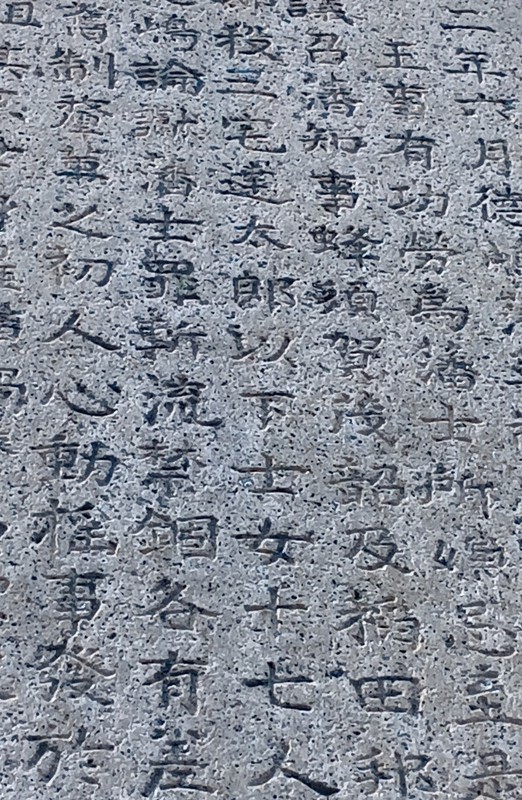 二年六月德
王事有功勞為藩士所忌至是
議召藩知事蜂須賀茂韶及稻田邦
殺三宅達太郎以下士女十七人
論讞藩士罪斬流禁錮各有差
舊制釐革之初人心動搖事發於